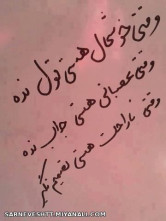 وقتی خوشحال هستی قول نده
وقتی عصبانی هستی جواب نده
وقتی ناراحت هستی تصمیم نگیر
SARNEVESHTT.MIYANALI.COM